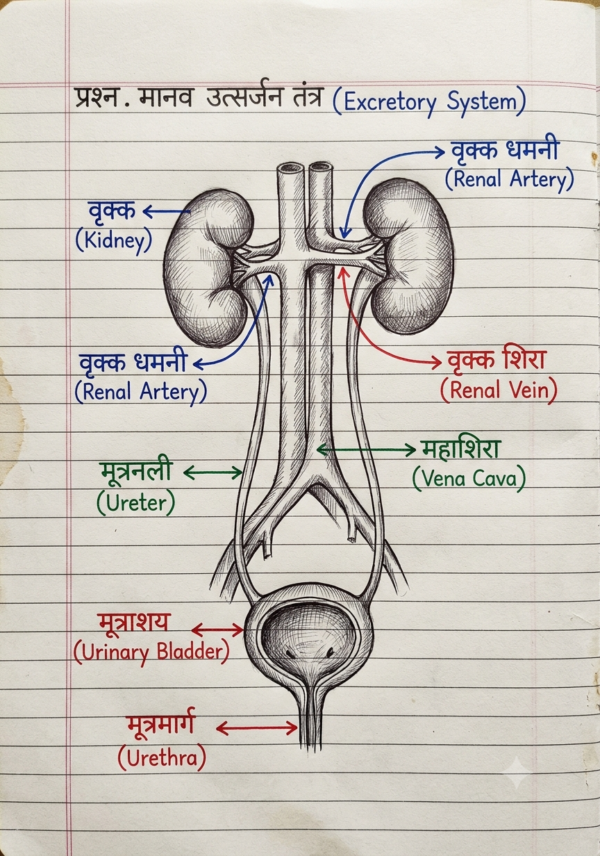 प्रश्न. मानव उत्सर्जन तंत्र (Excretory System)
वृक्क धमनी
(Renal Artery)
वृक्क
(Kidney)
वृक्क धमनी
(Renal Artery)
वृक्क शिरा
(Renal Vein)
महाशिरा
(Vena Cava)
मूत्रनली
(Ureter)
मूत्राशय
(Urinary Bladder)
मूत्रमार्ग
(Urethra)